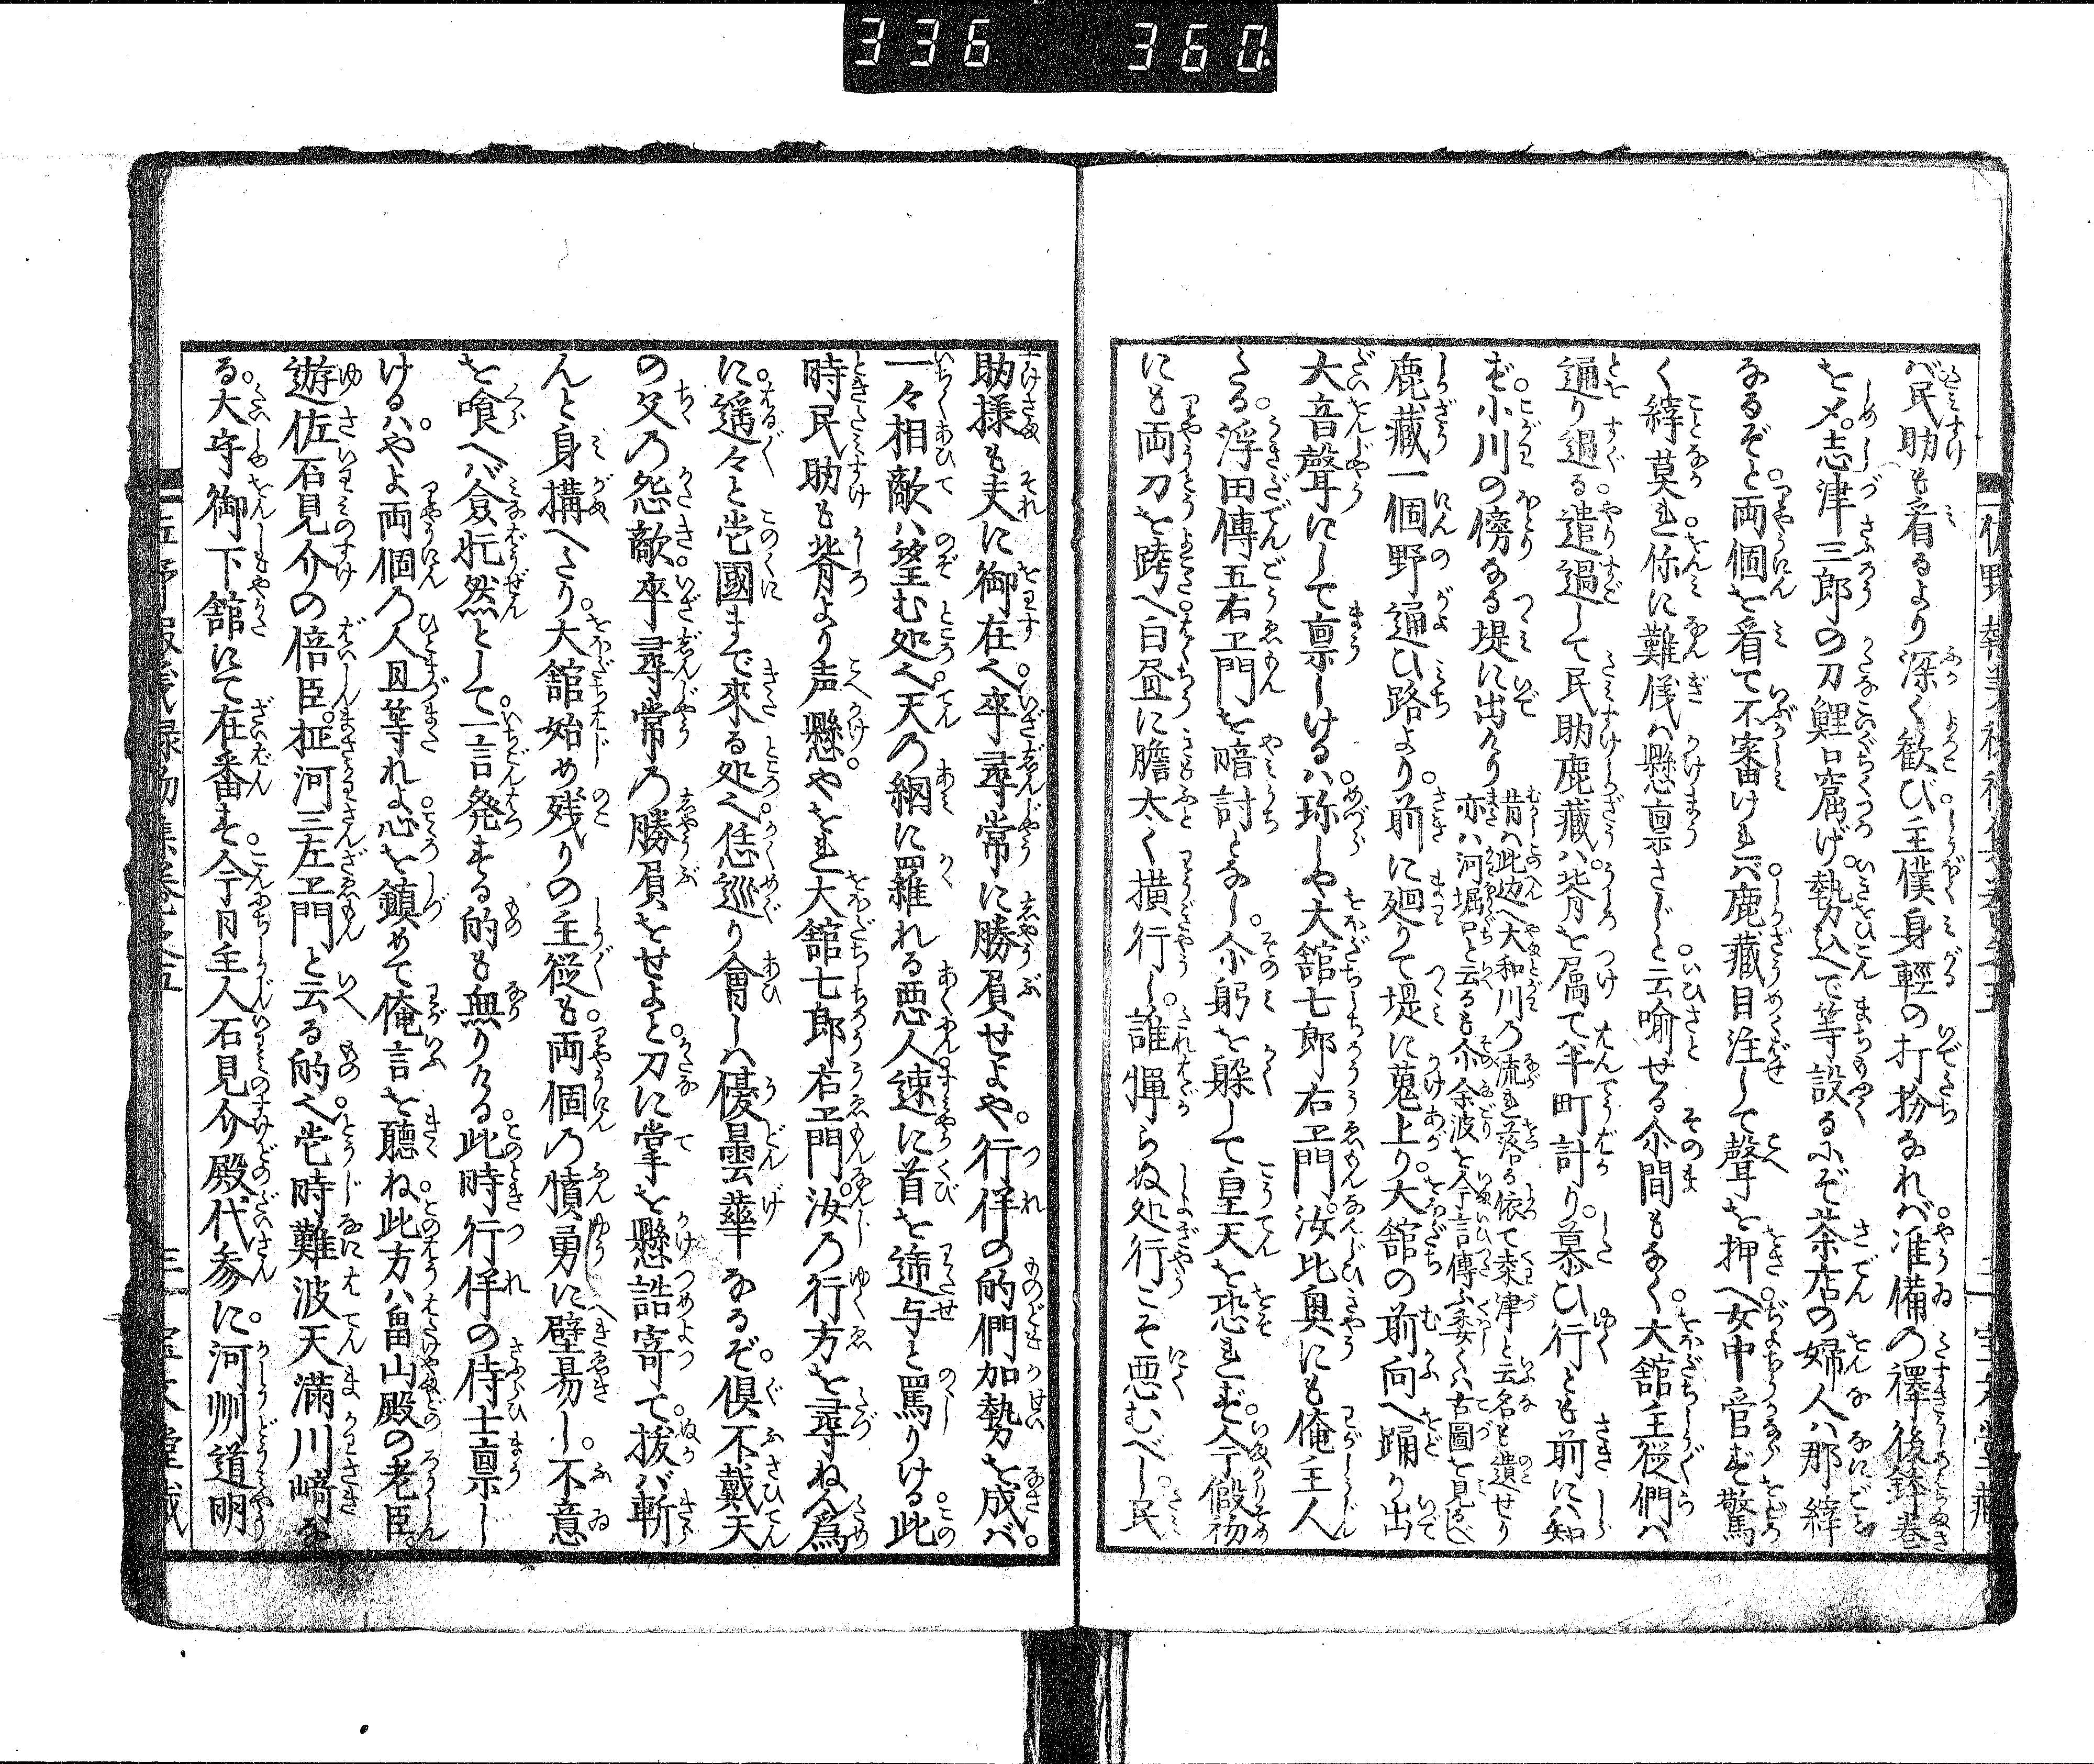 336 360
バ民助も看るより深く歓び主僕身軽の打扮なれバ准備の襷後鉢巻
を〆志津三郎の刀鯉口寛げ勢込で等設るにぞ茶店の婦人ハ那縡
なるぞと両個を看て不審けれバ鹿蔵目注して聲を押へ女中官ず驚
く縡莫れ你に難儀ハ懸稟さじと云喩せる尓間もなく大舘主従們ハ
通り過る遣過して民助鹿蔵ハ背を属て半町計り慕ひ行とも前にハ知
ず小川の傍なる堤に出けり
昔ハ此辺へ大和川の流れ落る依て桒津と云名も遺せり
亦ハ河堀口と云るも尓余波を今言傳ふ委くハ古圖を見るべし
鹿藏一個野通ひ路より前に廻りて堤に蒐上り大舘の前向へ踊り出
大音聲にして稟しけるハ珎しや大舘七郎右エ門汝比奥にも俺主人
たる浮田傳五右エ門を暗討となし尓躬を躱して皇天を恐れず今假初
にも両刀を跨へ白昼に膽太く横行し誰憚らぬ処行こそ悪むべし民
助様も夫に御在へ卒尋常に勝負せよや行伴の的們加勢を成バ
一々相敵ハ望む処へ天の網に羅れる悪人速に首を逓与と罵りける此
時民助も背より声懸やをれ大舘七郎右エ門汝の行方を尋ね人為
に遥々と壱國まで來る処へ恁巡り會しハ優曇華なるぞ倶不戴天
の父の怨敵卒尋常の勝負をせよと刀に掌を懸詰寄て抜バ斬
んと身搆へたり大舘始め残りの主従も両個の憤勇に壁易し不意
を喰へバ僉忙然として一言発する的も無りける此時行伴の侍士稟し
けるハやよ両個の人且等れよ心を鎮めて俺言を聴ね此方ハ畠山殿の老臣
遊佐石見介の倍臣柾河三左エ門と云る的へ壱時難波天満川﨑な
る大守御下舘にて在番す今月主人石見介殿代参に河州道明